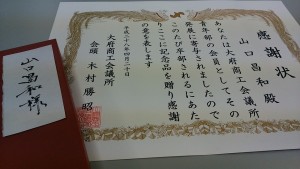 感謝状
山口昌和殿
あなたは大府商工会議所
青年部の会員としてその
発展に寄与されましたので
このたび卒部されるにあた
りここに記念品を贈り感謝
の意を表します
平成二十八年四月二十日
大府商工会議所
会頭 木村勝昭
山口昌和様